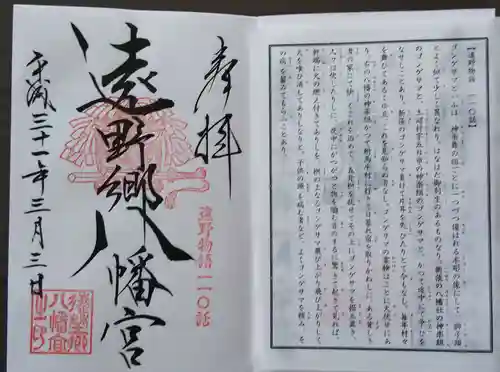 【遠野物語 一一〇話】
ゴンゲサマと云ふは、神楽舞の組ごとに一つづつ備はれる木彫の像にして、獅子頭
とよく似て少しく異なれり。はなはだ御利生のあるものなり。新張の八幡社の神楽組
のゴンゲサマと、土淵村字五日市の神楽組のゴンゲサマと、かつて途中にて争ひを
なせしことあり。新張のゴンゲサマ負けて片耳を失ひたりとて今もなし。毎年村々
を舞ひてあるく故、これを見知らぬ者なし。ゴンゲサマの霊験はことに火伏せにあ
り。右の八幡の神楽組かつて附馬牛村に行きて日暮れ宿を取りかねしに、ある貧しき
者の家にて快くこれを泊めて、五升桝を伏せてその上にゴンゲサマを据ゑ置き、
人々は臥したりしに、夜中にがつがつと物を噛む音のするに驚きて起きて見れば、
軒端に火の燃え付きてありしを、桝の上なるゴンゲサマ飛び上り飛び上りして、
火を喰ひ消してありしなりと。子供の頭を病む者など、よくゴンゲサマを頼み、そ
の病を噛みてもらふことあり。
奉拝
遠野物語一一〇話
遠野郷八幡宮
平成三十一年三月三日
遠野郷
八幡宮